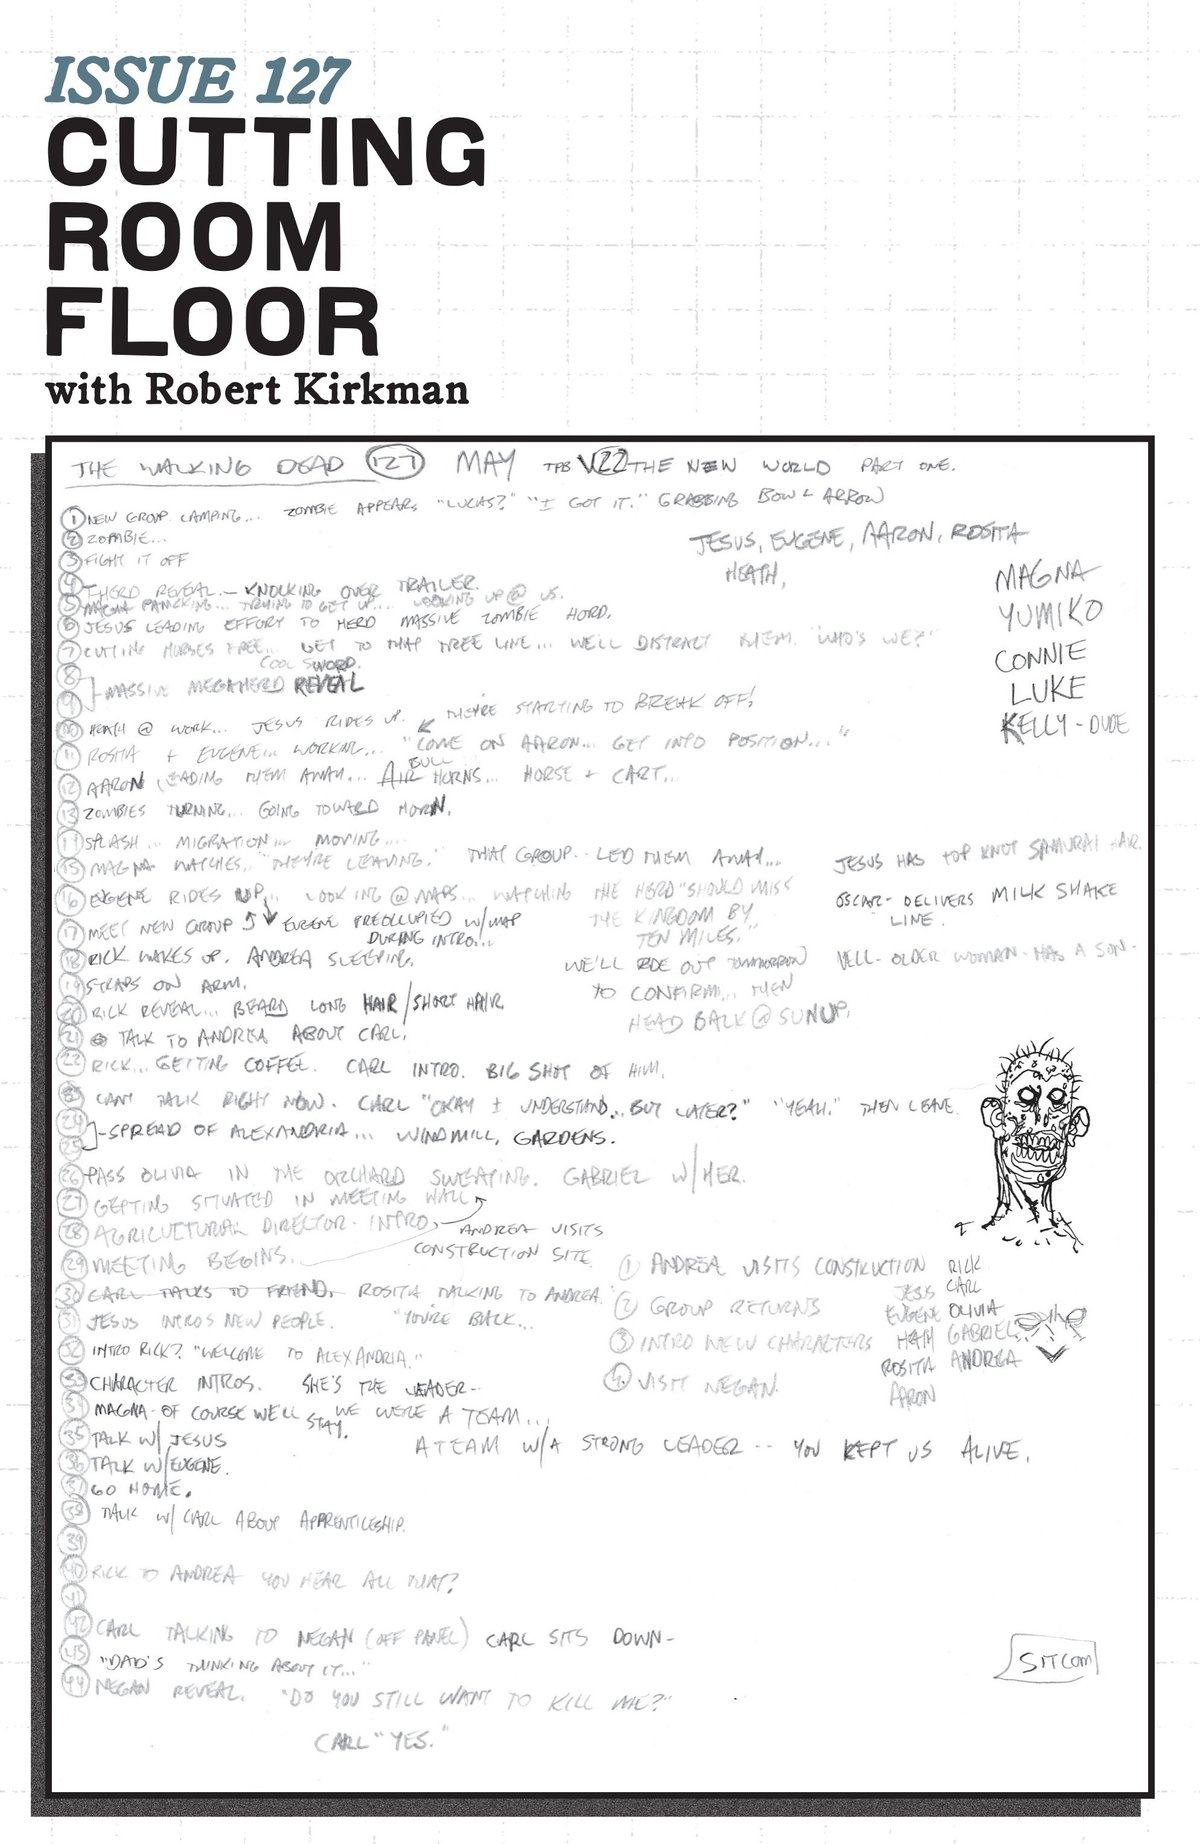 ISSUE 127
CUTTING
ROOM
FLOOR
with Robert Kirkman
THE WALKING DEAD 127 MAY TPB V22 THE NEW WORLD PART ONE.
1 NEW GROUP CAMPING... ZOMBIE APPEARS "LUCAS?" "I GOT IT." GRABBING BOW & ARROW
2 ZOMBIE...
3 FIGHT IT OFF
JESUS, EUGENE, AARON, ROSITA
HEATH,
MAGNA
YUMIKO
CONNIE
LUKE
KELLY - DUDE
4 HERD REVEAL - KNOCKING OVER TRAILER.
5 MAGNA PANICKING... TRYING TO GET UP... LOOKING UP @ US.
6 JESUS LEADING EFFORT TO HERD MASSIVE ZOMBIE HORD.
7 CUTTING HORSES FREE... GET TO THAT TREE LINE... WE'LL DISTRACT THEM. "WHO'S WE?"
COOL SWORD.
8
9 MASSIVE MEGAHERD REVEAL
10 HEATH @ WORK... JESUS RIDES UP. THEY'RE STARTING TO BREAK OFF!
11 ROSITA + EUGENE... WORKING... "COME ON AARON... GET INTO POSITION..."
BULL
12 AARON LEADING THEM AWAY... AIR HORNS... HORSE + CART...
13 ZOMBIES TURNING... GOING TOWARD HORN.
14 SPLASH... MIGRATION... MOVING...
15 MAGNA WATCHES... "THEY'RE LEAVING." THAT GROUP.. LED THEM AWAY...
JESUS HAS TOP KNOT SAMURAI HAIR.
16 EUGENE RIDES UP... LOOKING @ MAPS... WATCHING THE HERD "SHOULD MISS
THE KINGDOM BY
TEN MILES."
OSCAR - DELIVERS MILK SHAKE
LINE.
17 MEET NEW GROUP EUGENE PREOCCUPIED W/ MAP
DURING INTRO...
18 RICK WAKES UP. ANDREA SLEEPING.
WE'LL RIDE OUT TOMORROW
TO CONFIRM... THEN
HEAD BACK @ SUNUP.
OLDER WOMAN - HAS A SON -
19 STRAPS ON ARM.
20 RICK REVEAL... BEARD LONG HAIR/SHORT HAIR
21 TALK TO ANDREA ABOUT CARL.
22 RICK... GETTING COFFEE. CARL INTRO. BIG SHOT OF HIM.
23 CAN'T TALK RIGHT NOW. CARL "OKAY I UNDERSTAND.. BUT LATER?" "YEAH." THEN LEAVE.
24
25 - SPREAD OF ALEXANDRIA... WINDMILL, GARDENS.
26 PASS OLIVIA IN THE ORCHARD SWEATING. GABRIEL W/ HER.
27 GETTING SITUATED IN MEETING HALL
28 AGRICULTURAL DIRECTOR - INTRO
ANDREA VISITS
CONSTRUCTION SITE
29 MEETING BEGINS.
30 CARL TALKS TO FRIEND. ROSITA TALKING TO ANDREA.
31 JESUS INTROS NEW PEOPLE. "YOU'RE BACK...
32 INTRO RICK? "WELCOME TO ALEXANDRIA."
33 CHARACTER INTROS. SHE'S THE LEADER--
34 MAGNA - OF COURSE WE'LL STAY. WE WERE A TEAM...
A TEAM W/A STRONG LEADER -- YOU KEPT US ALIVE.
1 ANDREA VISITS CONSTRUCTION
2 GROUP RETURNS
3 INTRO NEW CHARACTERS
4. VISIT NEGAN.
RICK
CARL
OLIVIA
GABRIEL
ANDREA
JESUS
EUGENE
HEATH
ROSITA
AARON
35 TALK W/ JESUS
36 TALK W/ EUGENE.
37 GO HOME.
38 TALK W/ CARL ABOUT APPRENTICESHIP.
39
40 RICK TO ANDREA YOU HEAR ALL THAT?
41
42 CARL TALKING TO NEGAN (OFF PANEL) CARL SITS DOWN -
43 "DAD'S THINKING ABOUT IT..."
44 NEGAN REVEAL. "DO YOU STILL WANT TO KILL ME?"
CARL "YES."
SITCOM